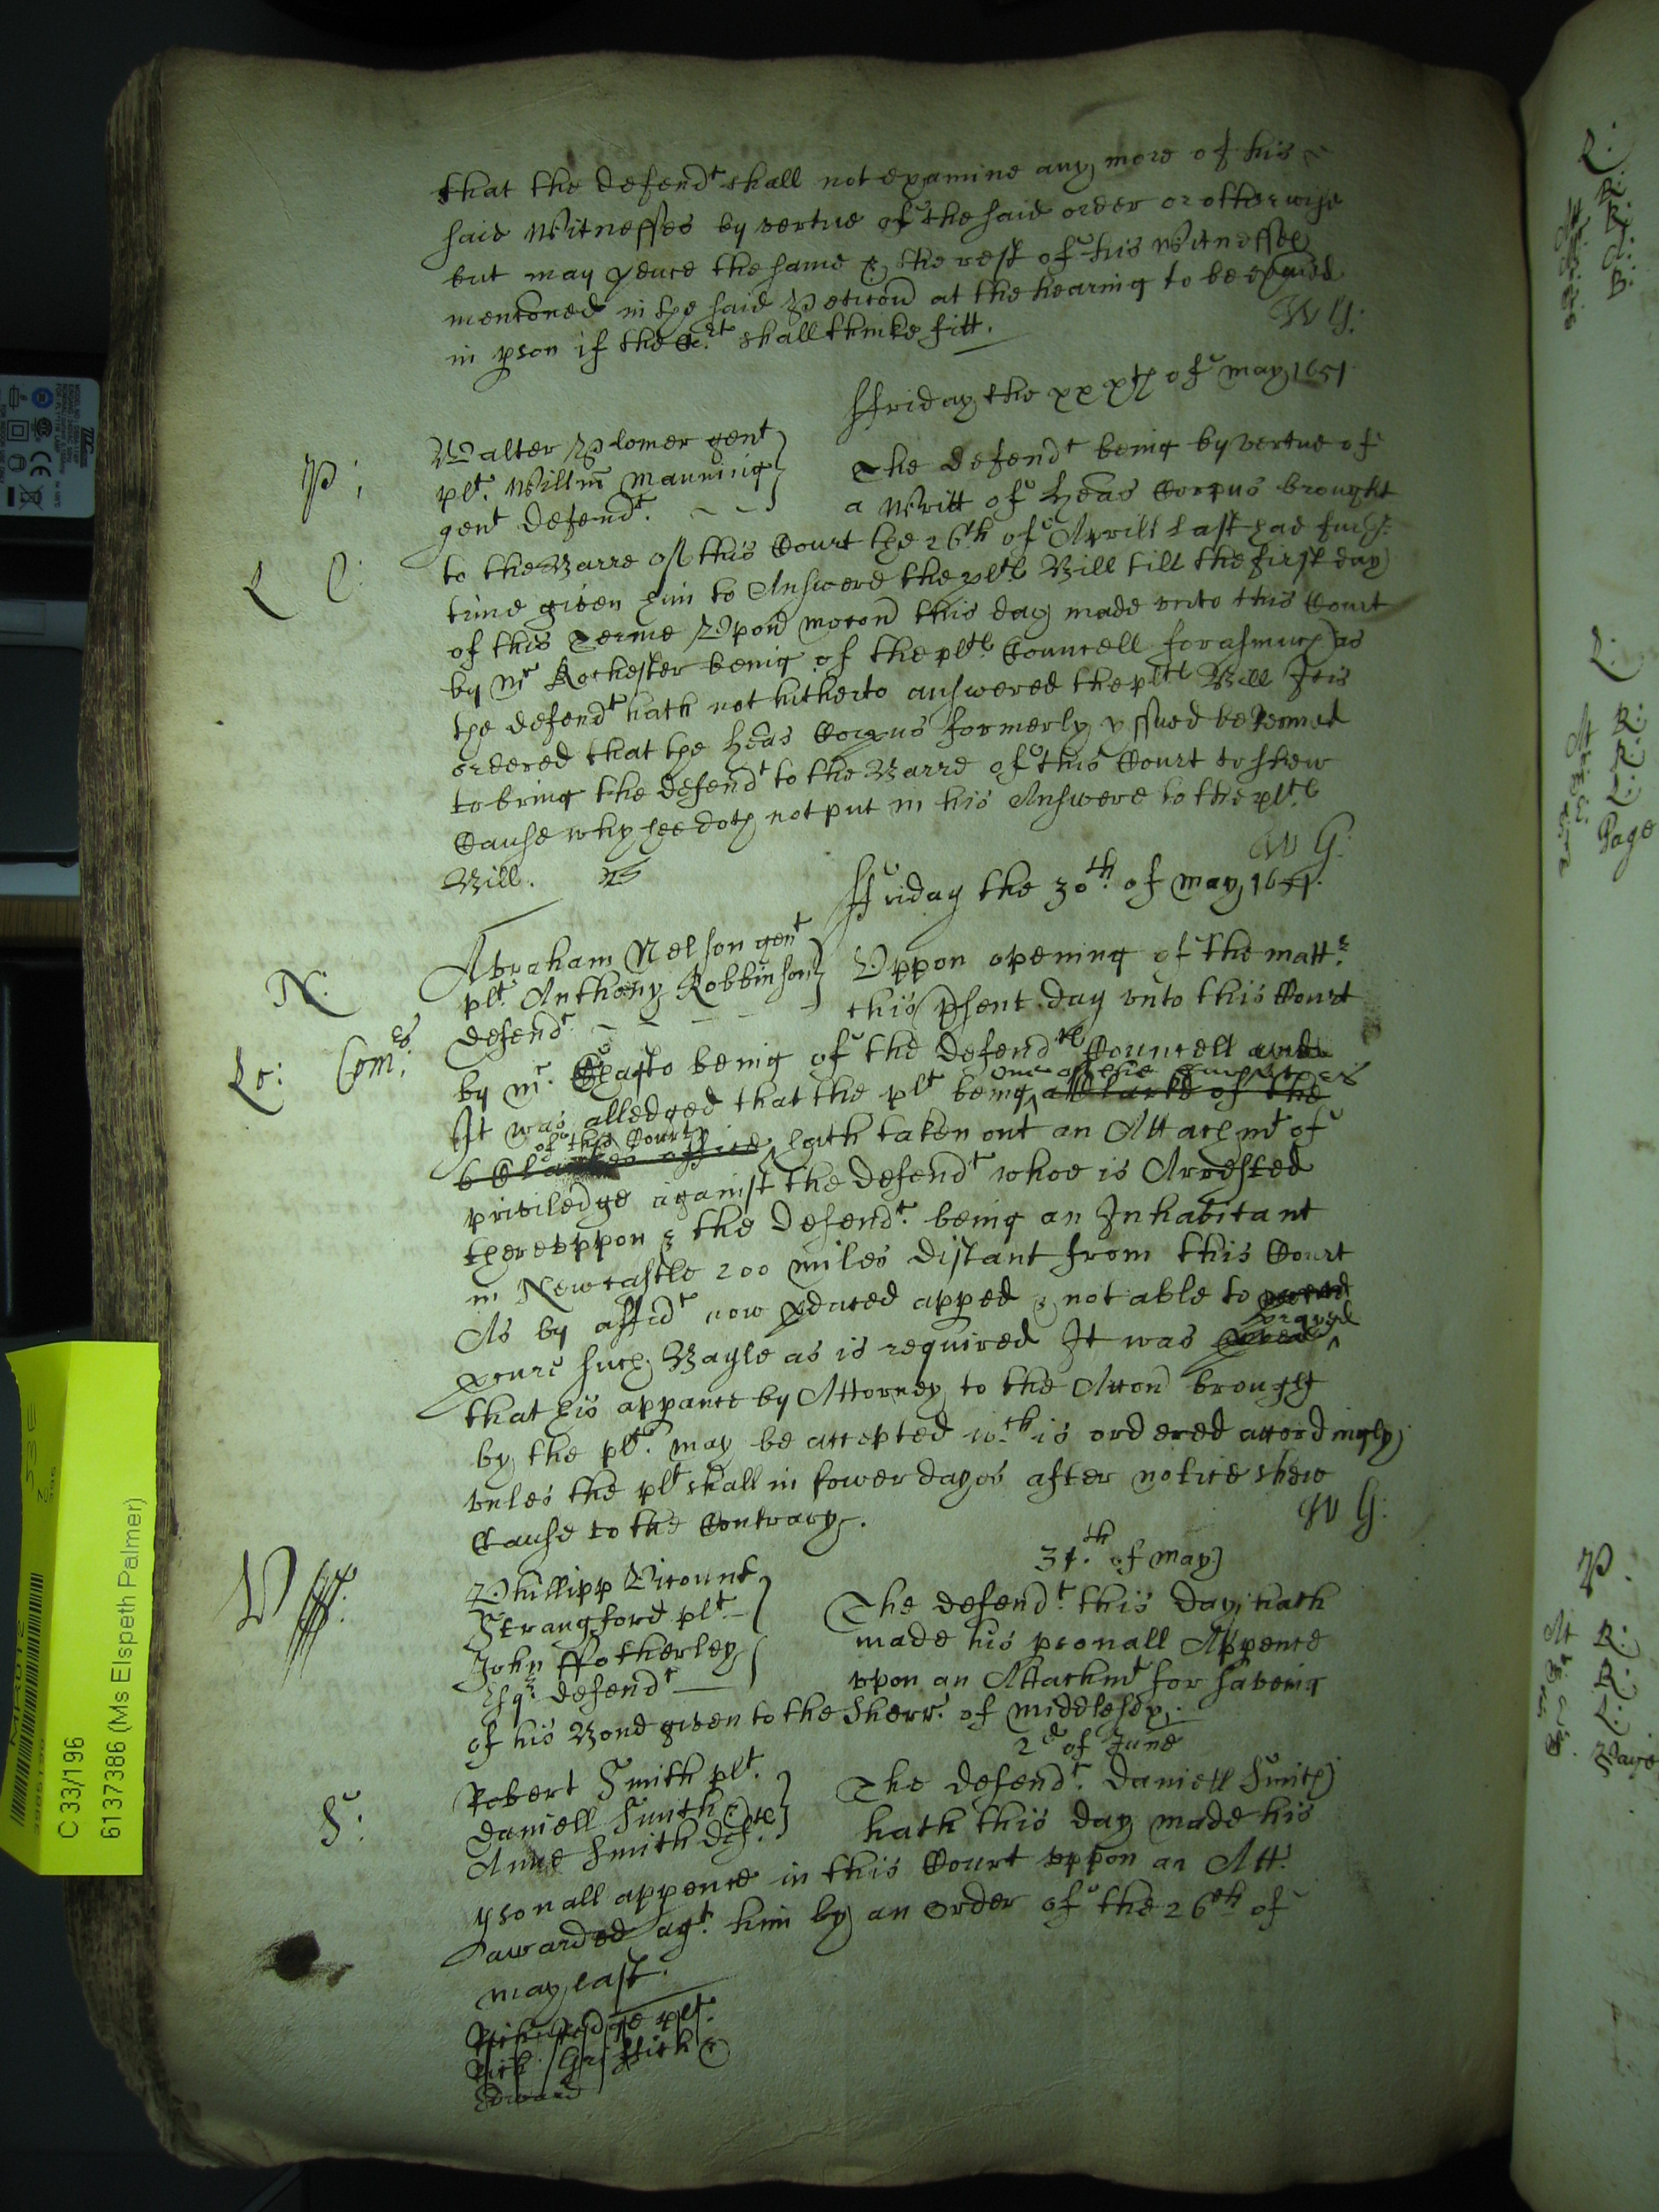 that the defendt shall not examine any more of his
said Witnesses by vertue of the said order or otherwise
but may pduce the same & the rest of his Witnesses
mencõned in the said Peticõn at the hearing to be exãied
in pson if the Crt shall thinke fitt.
WG:
ffriday the xxxth of may 1651
P:
Walter Plomer gent
plt. Willm Manning
gent defendt.
The defendt being by vertue of
a Writt of Heãs Corpus brought
L C:
to the Barre of this Court the 26th of Aprill last had such
time given him to Answere the plts Bill till the first day
of this Terme Upon mocõn this day made vnto this Court
by mr Rochester being of the plts Councell forasmuch as
the defendt hath not hitherto answered the plts Bill It is
ordered that the Heãs Corpus formerly yssued be renued
to bring the defendt to the Barre of this Court to shew
Cause why hee doth not put in his Answere to the plts
Bill.
WG:
ffriday the 30th of may 1651.
N:
Abraham Nelson gent
plt. Anthony Robbinson
defendt
Vppon opening of the mattr
this psent day vnto this Court
Lo: Comes:
by mr. being of the defendts Councell and
It was alledged that the plt being a Clarke of the
one of the
6 Clarkes office hath taken out an Attachmt of
of this Court
priviledge against the defendt whoe is Arrested
therevppon & the defendt. being an Inhabitant
in Newcastle 200 miles distant from this Court
As by affidt now pduced apped & not able to
pcure such Bayle as is required It was prayed
that his appance by Attorney to the Accõn brought
by the plt. may be accepted wch is ordered accordingly
vnles the plt shall in fower dayes after notice shew
Cause to the Contrary.
WG:
31th of may
V ff:
Phillipp Vicount
Strangford plt.
John ffotherley
Esqr defendt
The defendt. this day hath
made his psonall Appence
vpon an Attachmt for saveing
of his Bond given to the Sherr. of middlesex.
2d of June
S:
Robert Smith plt.
Daniell Smith &
Anne Smith defts
The defendt. Daniell Smith
hath this day made his
psonall appence in this Court vppon an Att.
awarded agt. him by an order of the 26th of
may last.
plt.
Rich Griffith &
Edward
C 33/196
6137386 (Ms Elspeth Palmer)
Page